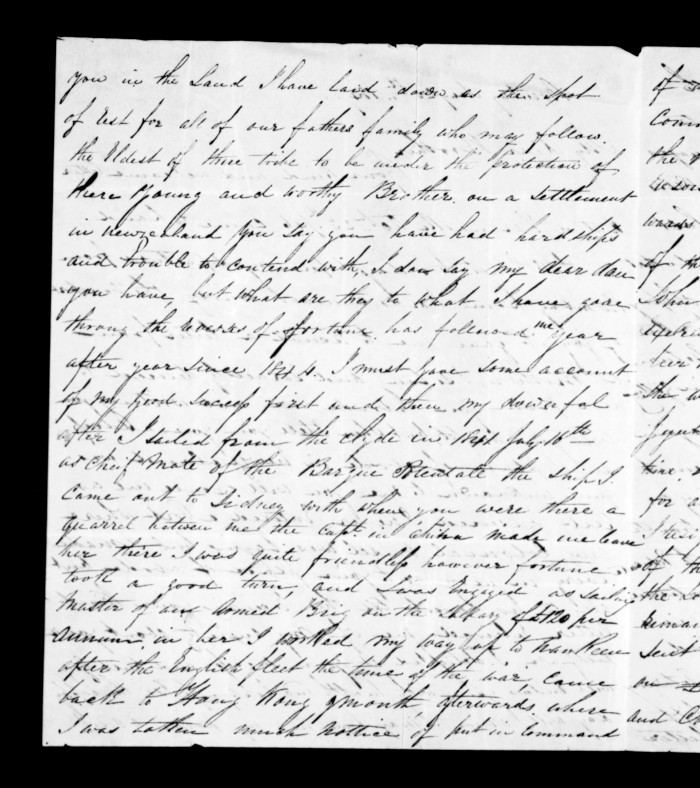 you in the Land I have laid down as the spot
of rest for all of our fathers family who may follow.
the Eldest of three tribe to be under the protection of
there young and worthy Brother. on a settlement
in Newzealand you say you have had hardships
and trouble to contend with, I dar say my dear Dan
you have, but what are they to what I have gone
throug the reverses of fortune has followd me year
after year since 1844. I must gave some account
of my good success first and then my downfal
after I sailed from the Clyde in 1841 July 18th
as Cheif Mate of the Barque the ship I
Came out to Sidney with when you were there a
quarrel between me the Capt. in China made me leave
her there I was quite friendless however fortune
took a good turn, and I was Engiged as sailing
Master of an Armed Brig on the Salary of £120 per
Annum. in her I worked my way up to Nankeen
after the English fleet the time of the war, came
back to Hong Kong 9 month afterwards where
I was taken much nottice of put in Command
of
Comm
the
ward
of th
her
the
time.
for
of th
the
sent
on
and